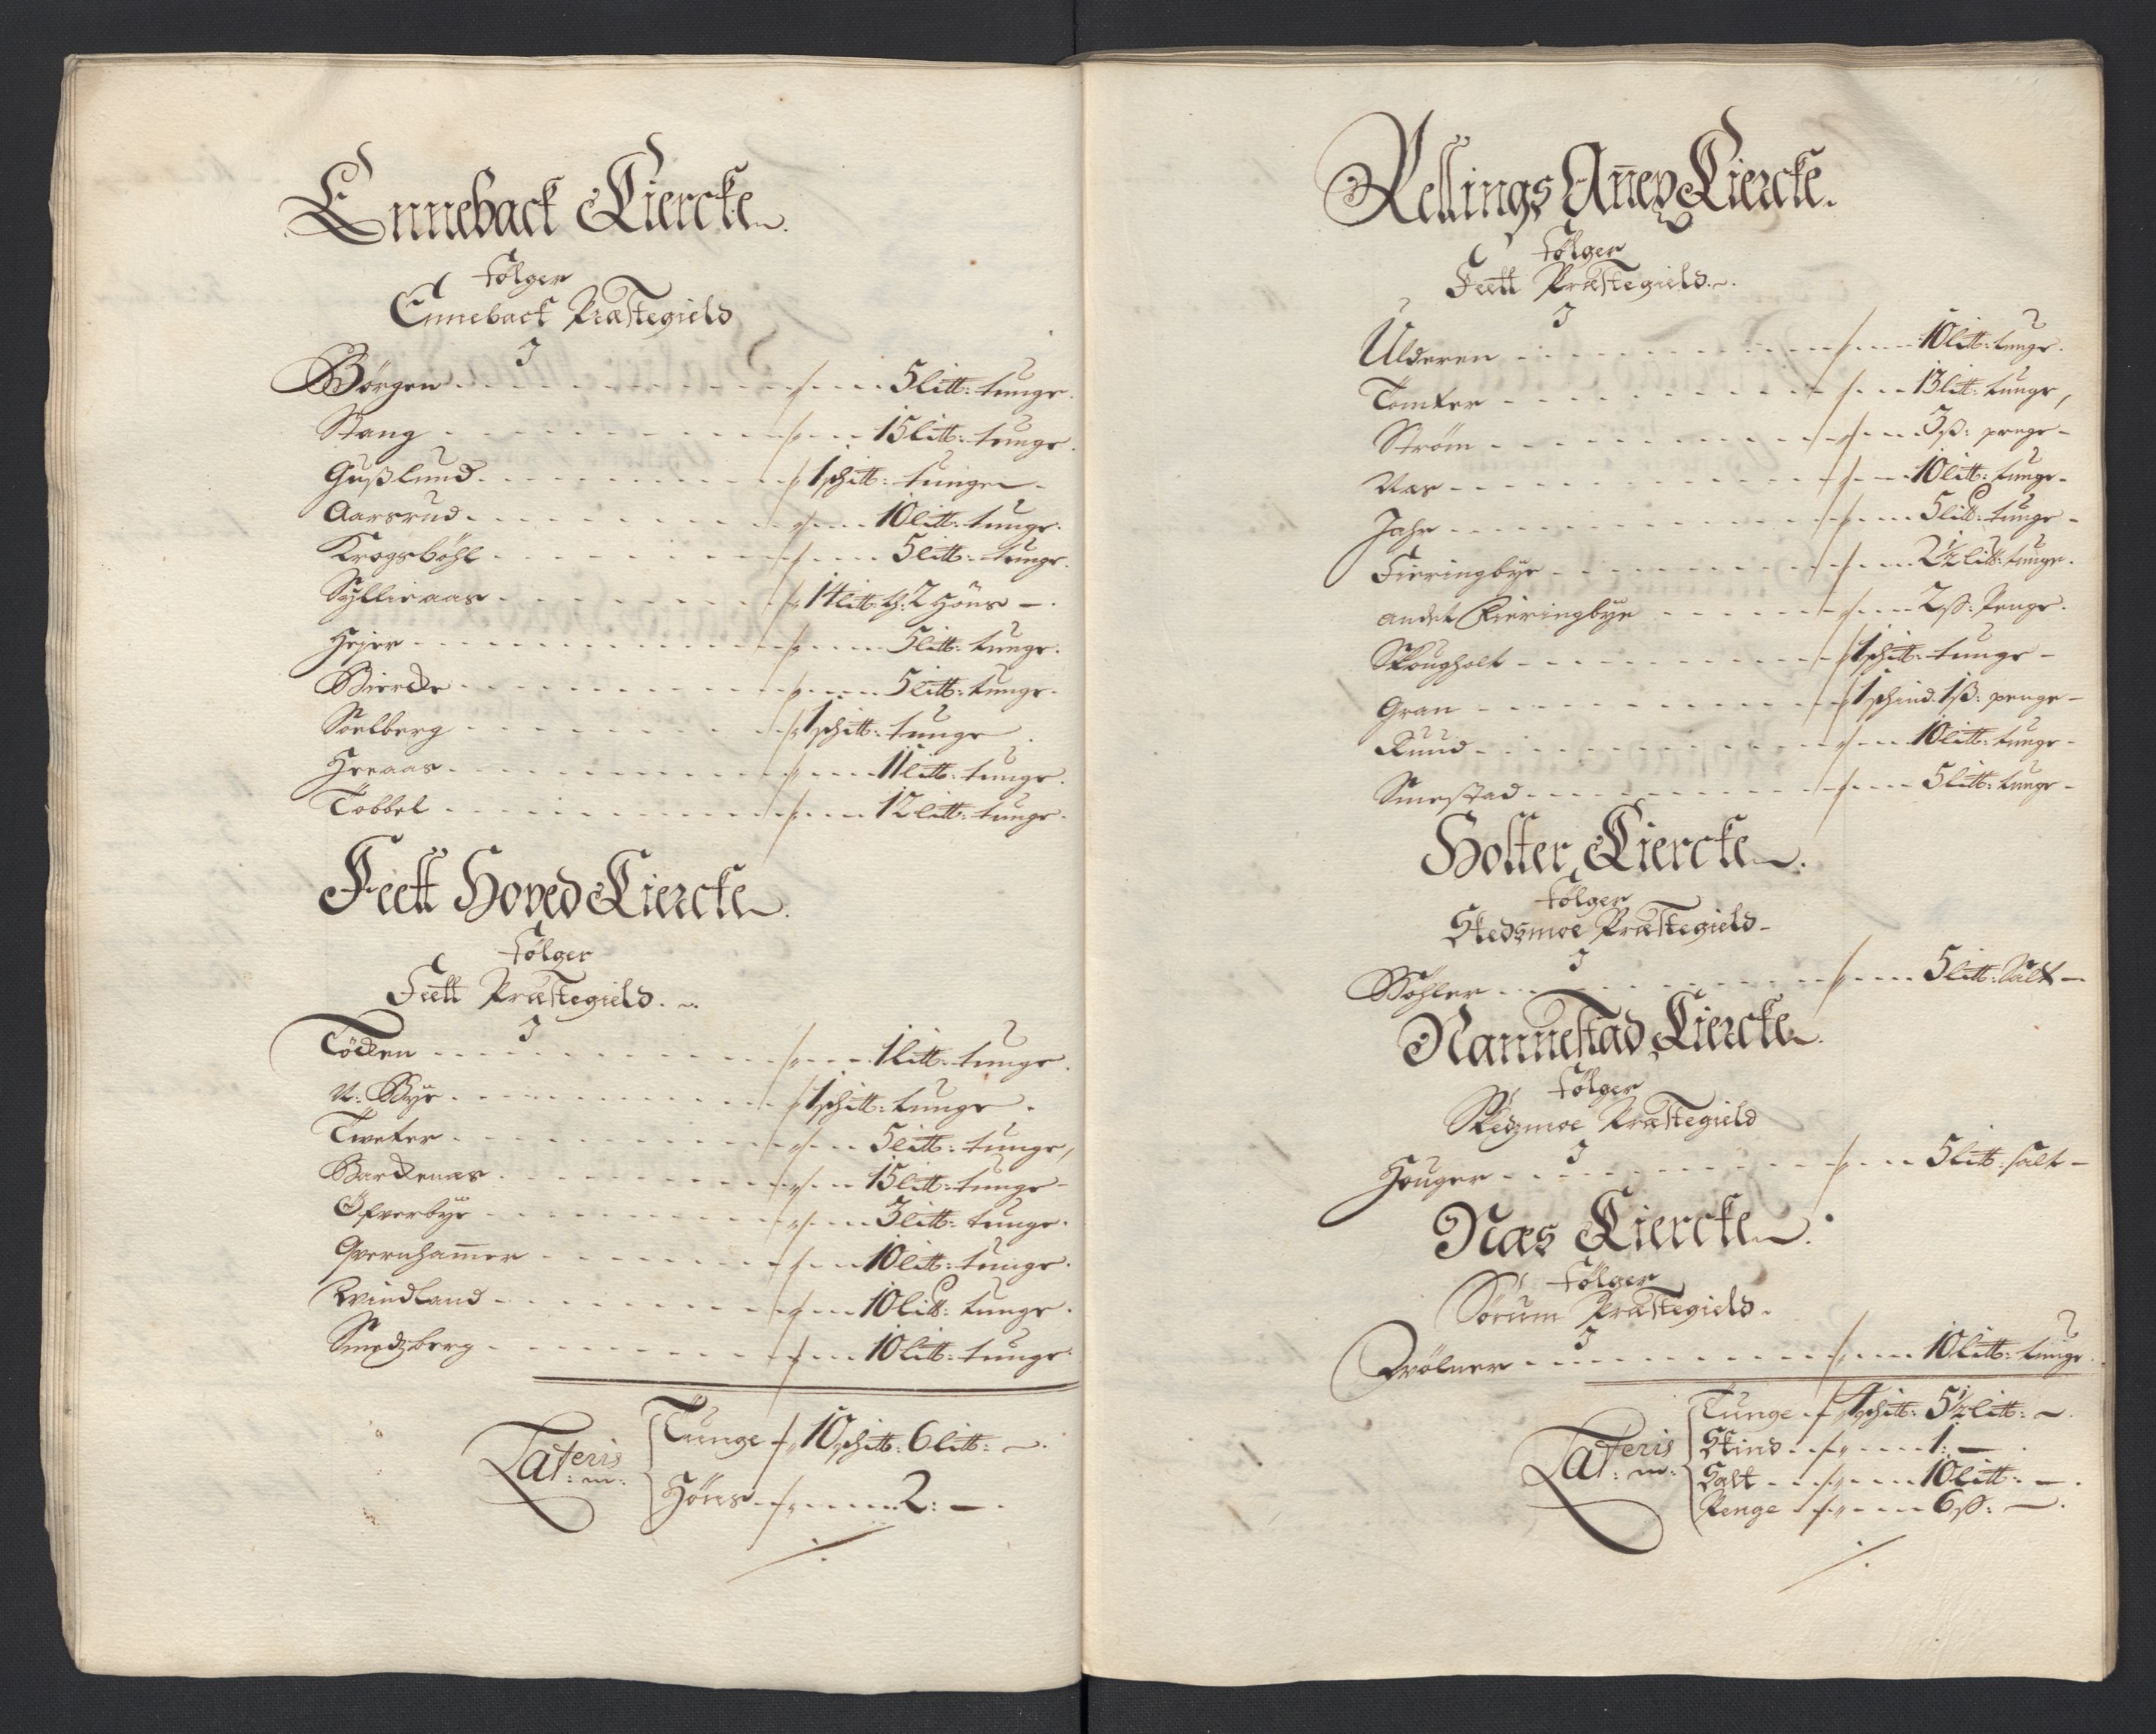 Enneback Kiercke
følger
Enneback Præstegield
J
Börgen 5 litt: tunge.
Stang 15 litt: tunge.
Gußlund 1 schitt: tunge
Aarsrud 10 litt: tunge.
Krogsböhl 5 litt: tunge.
Syllieaas 14 litt. 2 Höns
Hejer 5 litt: tunge.
Biercke 5 litt: tunge.
Soelberg 1 schitt: tunge
Hreaas 11 litt: tunge.
Tobbel 12 litt: tunge.
Feett Hoved Kiercke
følger
Feett Præstegield.
J
Töcken 1 litt: tunge.
N: Bye 1 schitt: tunge.
Tweter 5 litt: tunge,
Barckenæs 15 litt: tunge
Öfverbye 3 litt: tunge.
Qvernham̄er 10 litt: tunge.
Windland 10 litt: tunge.
Smedzberg 10 litt: tunge.
Lateris Tunge 10 schitt: 6 litt:
Höns 2:
Rellings An̄ex Kiercke.
følger
Feett Præstegield.
J
Ulderen 10 litt: tunge.
Tomter 13 litt: tunge,
Ström 3 ß: penge
Næs 10 litt: tunge.
Jahr 5 litt: tunge
Fieringbye 2½ litt: tunge.
andet Fieringbye 2 ß: Penge.
Skougholt 1 schitt: tunge
Gran 1 schind. 1 ß: penge
Ruud 10 litt: tunge
Smestad 5 litt: tunge
Holter Kiercke
følger
Skedzmoe Præstegield
J
Böhler 5 litt: Salt
Nannestad Kiercke
følger
Skedzmoe Præstegield
J
Houger 5 litt: salt
Næs Kiercke
følger
Sörum Præstegield.
J
Qvölner 10 litt: tunge.
Lateris Tunge 4 schitt: 5½ litt:
Skind 1:
Salt 10 litt:
Penge 6 ß: